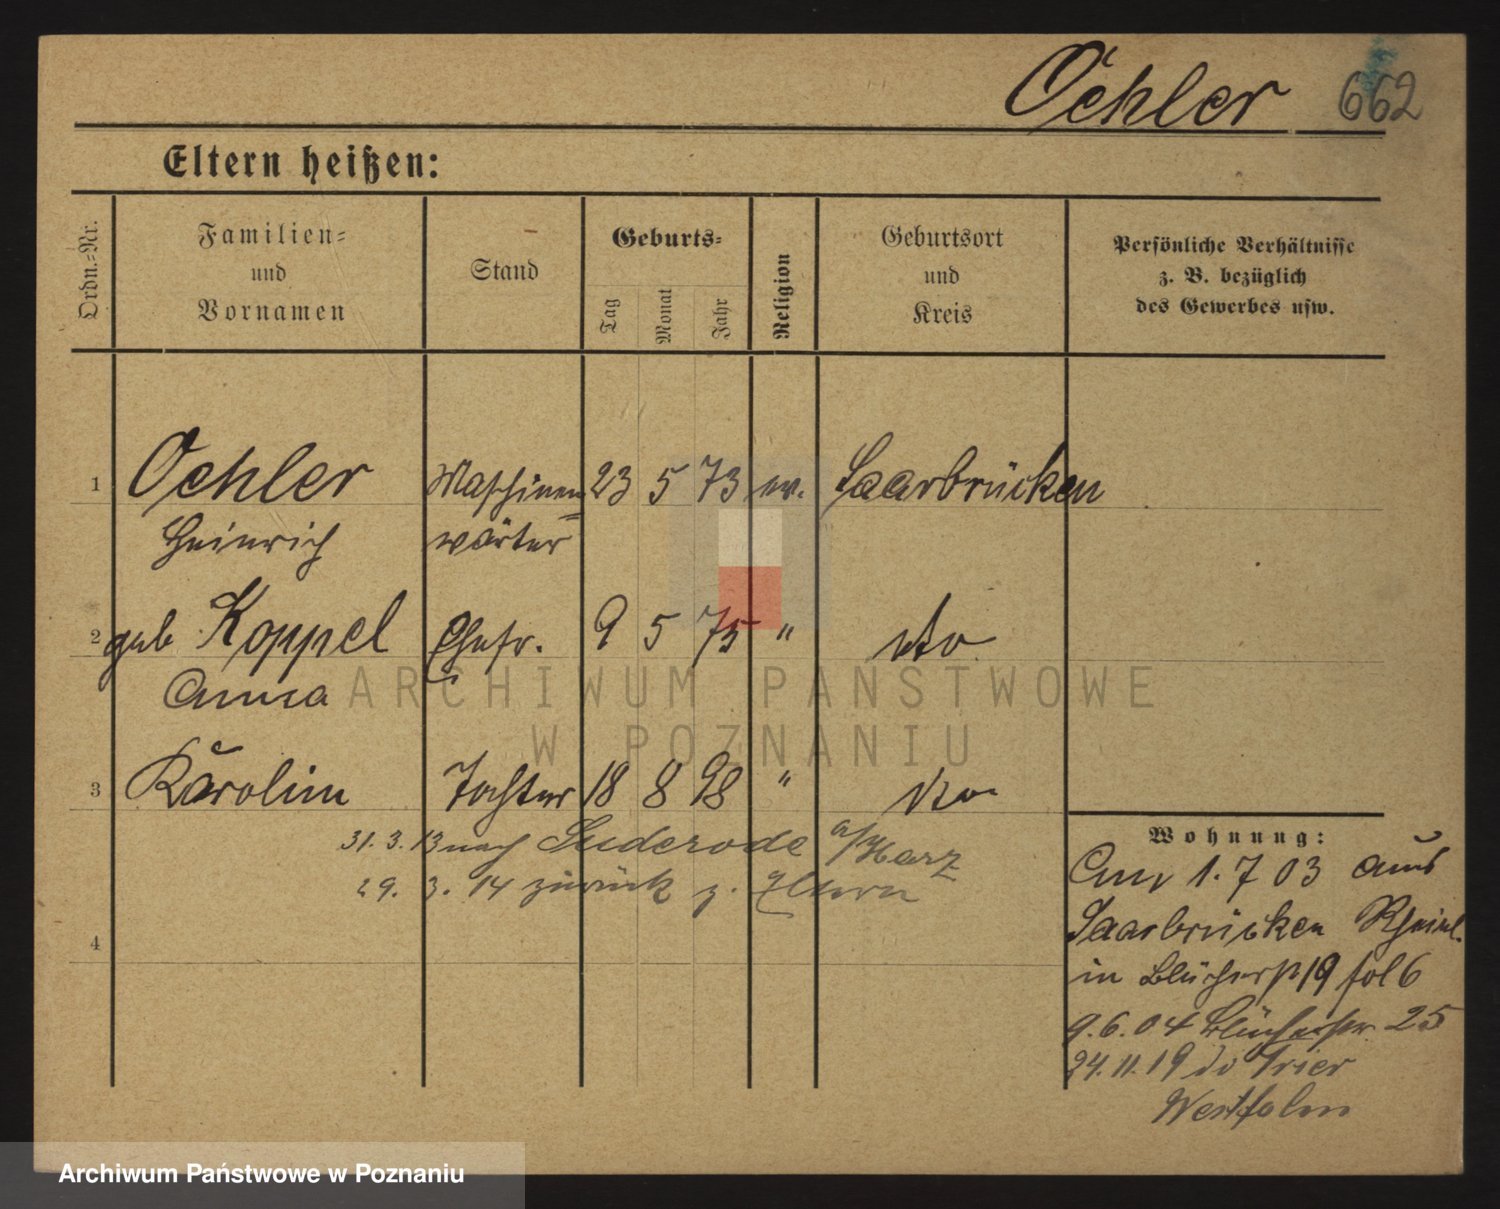 Oehler 662
Eltern heißen:
Ordn.-Nr.
Familien-
und
Vornamen
Stand
Geburts-
Tag
Monat
Jahr
Religion
Geburtsort
und
Kreis
Persönliche Verhältnisse
z. B. bezüglich
des Gewerbes usw.
1 Oehler Maschinen 23 5 73 ev. Saarbrücken
Heinrich wärter
2 geb Koppel Ehefr. 9 5 75 " dto
Anna
3 Karolin Tochter 18 8 98 " dto
31. 3. 13 nach Suderode a/Harz
29. 3. 14 zurück z. Eltern
4
Wohnung:
1. 7 03 aus
Saarbrücken Rheinl.
in Blücherstr 19 fol 6
9. 6. 04 Blücherstr 25
24. 11. 19 Trier
Westfalen
ARCHIWUM PAŃSTWOWE
W POZNANIU
Archiwum Państwowe w Poznaniu